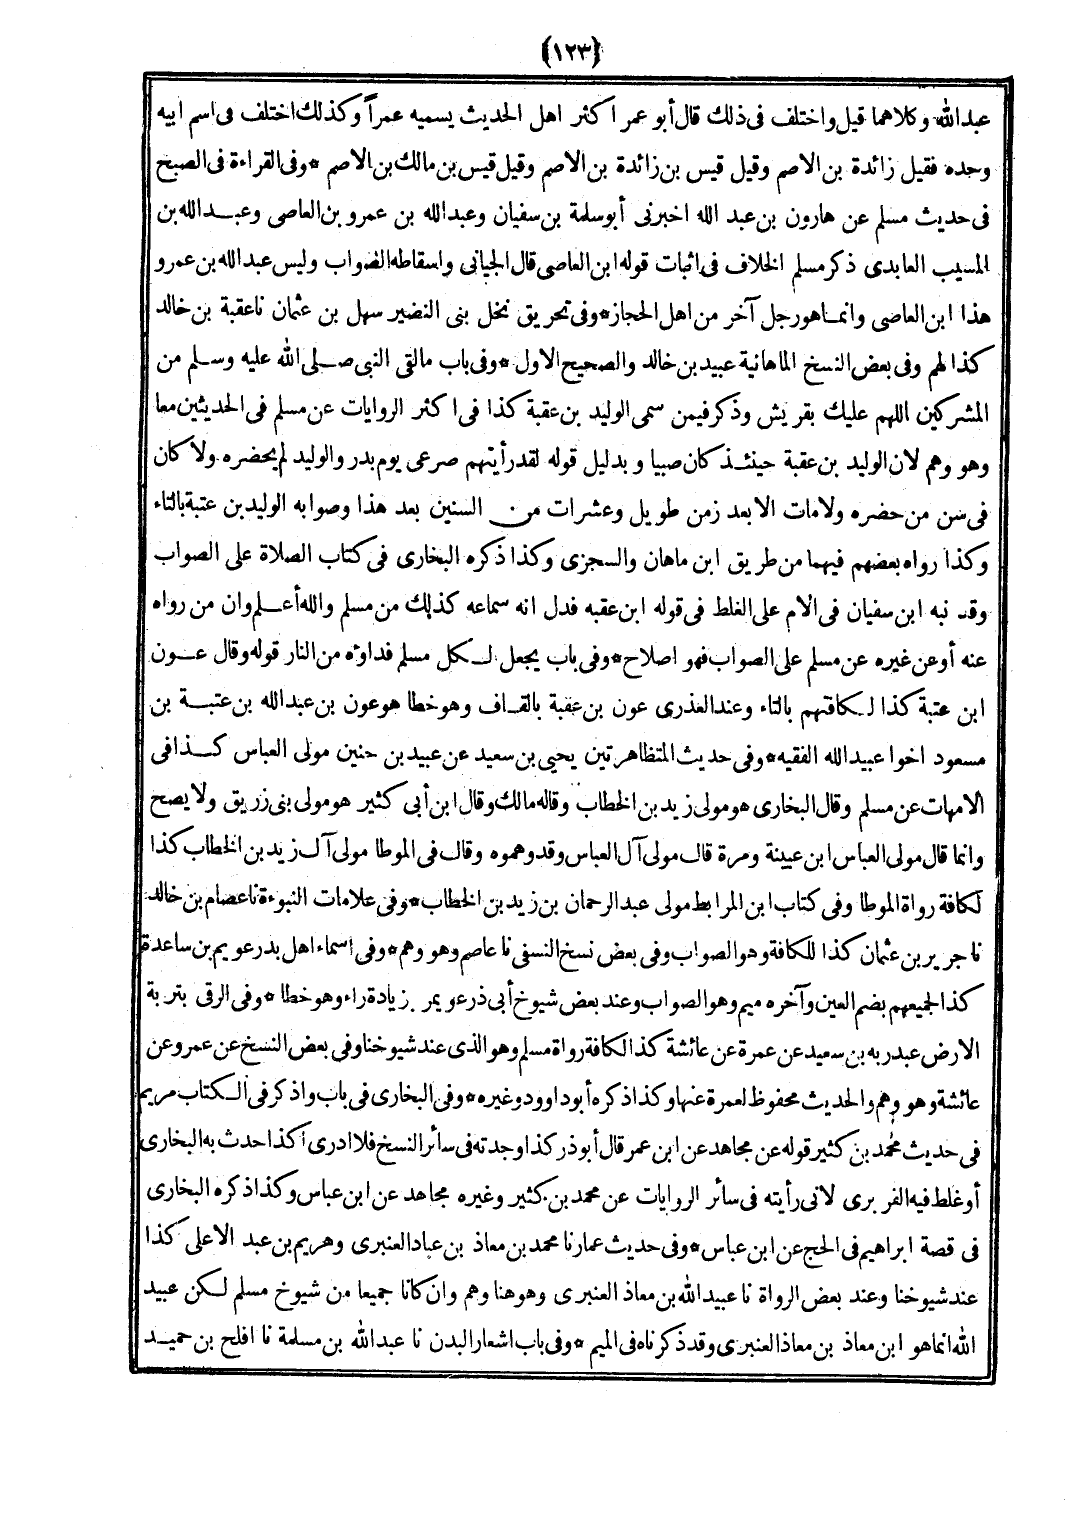 (١٢٣)
عبدالله وكلاهما قيل واختلف فى ذلك قال أبو عمر اكثر اهل الحديث يسميه عمراً وكذلك اختلف فى اسم ابيه
وجده فقيل زائدة بن الاصم وقيل قيس بن زائدة بن الاصم وقيل قيس بن مالك بن الاصم * وفى القراءة فى الصبح
فى حديث مسلم عن هارون بن عبد الله اخبرنى أبو سلمة بن سفيان وعبدالله بن عمرو بن العاصى وعبدالله بن
المسيب العابدى ذكر مسلم الخلاف فى اثبات قوله ابن العاصى قال الجيانى واسقاطه الصواب وليس عبدالله بن عمرو
هذا ابن العاصى وانما هو رجل آخر من اهل الحجاز * وفى تحريق نخل بنى النضير سهل بن عثمان نا عقبة بن خالد
كذا لهم وفى بعض النسخ الماهانية عبيد بن خالد والصحيح الاول * وفى باب مالقى النبى صلى الله عليه وسلم من
المشركين اللهم عليك بقريش وذكر فيمن سمى الوليد بن عقبة كذا فى اكثر الروايات عن مسلم فى الحديثين معا
وهو وهم لان الوليد بن عقبة حينئذ كان صبيا وبدليل قوله لقد رأيتهم صرعى يوم بدر والوليد لم يحضره ولا كان
فى سن من حضره ولامات الا بعد زمن طويل وعشرات من السنين بعد هذا وصوابه الوليد بن عتبة بالتاء
وكذا رواه بعضهم فيهما من طريق ابن ماهان والسجزى وكذا ذكره البخارى فى كتاب الصلاة على الصواب
وقد نبه ابن سفيان فى الام على الغلط فى قوله ابن عقبه فدل انه سماعه كذلك من مسلم والله أعلم وان من رواه
عنه أو عن غيره عن مسلم على الصواب فهو اصلاح * وفى باب يجعل لكل مسلم فداؤه من النار قوله وقال عون
ابن عتبة كذا لكافتهم بالتاء وعند العذرى عون بن عقبة بالقاف وهو خطا هو عون بن عبدالله بن عتبة بن
مسعود اخوا عبيدالله الفقيه * وفى حديث المتظاهرتين يحيى بن سعيد عن عبيد بن حنين مولى العباس كذا فى
الامهات عن مسلم وقال البخارى هو مولى زيد بن الخطاب وقاله مالك وقال ابن أبى كثير هو مولى بنى زريق ولا يصح
وانما قال مولى العباس ابن عيينة ومرة قال مولى آل العباس وقد وهموه وقال فى الموطا مولى آل زيد بن الخطاب كذا
لكافة رواة الموطا وفى كتاب ابن المرابط مولى عبد الرحمان بن زيد بن الخطاب * وفى علامات النبوءة نا عصام بن خالد
نا جرير بن عثمان كذا للكافة وهو الصواب وفى بعض نسخ النسفى نا عاصم وهو وهم * وفى اسماء اهل بدر عويم بن ساعدة
كذا لجميعهم بضم العين وآخره ميم وهو الصواب وعند بعض شيوخ أبى ذر عويمر بزيادة راء وهو خطا * وفى الرقى بتربة
الارض عبد ربه بن سعيد عن عمرة عن عائشة كذا لكافة رواة مسلم وهو الذى عند شيوخنا وفى بعض النسخ عن عمرو عن
عائشة وهو وهم والحديث محفوظ لعمرة عنها وكذا ذكره أبو داوود وغيره * وفى البخارى فى باب واذكر فى الكتاب مريم
فى حديث محمد بن كثير قوله عن مجاهد عن ابن عمر قال أبو ذر كذا وجدته فى سائر النسخ فلا ادرى أكذا حدث به البخارى
أو غلط فيه الفربرى لانى رأيته فى سائر الروايات عن محمد بن كثير وغيره مجاهد عن ابن عباس وكذا ذكره البخارى
فى قصة ابراهيم فى الحج عن ابن عباس * وفى حديث عمار نا محمد بن معاذ بن عباد العنبرى وهريم بن عبد الاعلى كذا
عند شيوخنا وعند بعض الرواة نا عبيد الله بن معاذ العنبرى وهو هنا وهم وان كانا جميعا من شيوخ مسلم لكن عبيد
الله انما هو ابن معاذ بن معاذ العنبرى وقد ذكرناه فى الميم * وفى باب اشعار البدن نا عبدالله بن مسلمة نا افلح بن حميد